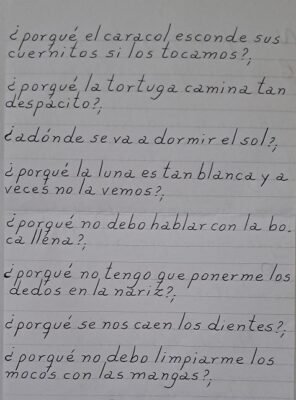 ¿porqué el caracol esconde sus
cuernitos si los tocamos?;
¿porqué, la tortuga camina tan
despácito?;
¿adónde se va a dormir el sol?;
¿porqué la luna es tan blanca y a
veces no la vemos?;
¿porqué no debo hablar con la bo-
ca lléna?;
¿porqué no, tengo que ponerme los
dedos en la naríz?;
¿porqué se nos caen los dientes?;
¿porqué no debo limpiarme los
mocos con las mangas?;